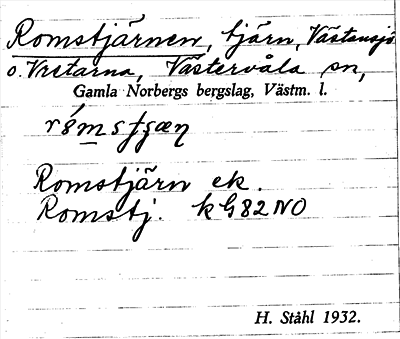 Romstjärnen, tjärn, Västansjö
o. Vretarna, Västervåla sn,
Gamla Norbergs bergslag, Västm. l.
Romstjärn ek.
Romstj. k G82NO
H. Ståhl 1932.